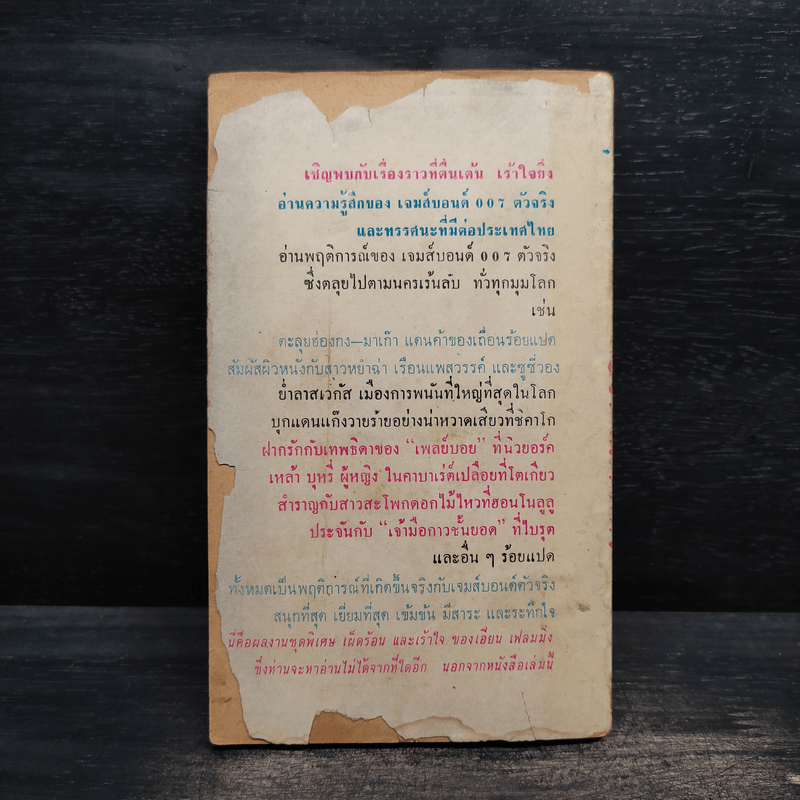 เชิญพบกับเรื่องราวที่ตื่นเต้น เร้าใจยิ่ง
อ่านความรู้สึกของ เจมส์บอนด์ 007 ตัวจริง
และทรรศนะที่มีต่อประเทศไทย
อ่านพฤติการณ์ของ เจมส์บอนด์ 007 ตัวจริง
ซึ่งตลุยไปตามนครเร้นลับ ทั่วทุกมุมโลก
เช่น
ตะลุยฮ่องกง—มาเก๊า แดนค้าของเถื่อนร้อยแปด
สัมผัสผิวหนังกับสาวหยำฉ่า เรือนแพสวรรค์ และซูซี่วอง
ย่ำลาสเวกัส เมืองการพนันที่ใหญ่ที่สุดในโลก
บุกแดนแก๊งวายร้ายอย่างน่าหวาดเสียวที่ชิคาโก
ฝากรักกับเทพธิดาของ “เพลย์บอย” ที่นิวยอร์ค
เหล้า บุหรี่ ผู้หญิง ในคาบาเร่ต์เปลือยที่โตเกียว
สำราญกับสาวสะโพกดอกไม้ไหวที่ฮอนโนลูลู
ประจันกับ “เจ้ามือกาวชั้นยอด” ที่ไบรุต
และอื่น ๆ ร้อยแปด
ทั้งหมดเป็นพฤติการณ์ที่เกิดขึ้นจริงกับเจมส์บอนด์ตัวจริง
สนุกที่สุด เยี่ยมที่สุด เข้มข้น มีสาระ และระทึกใจ
นี่คือผลงานชุดพิเศษ เผ็ดร้อน และเร้าใจ ของเอียน เฟลมมิ่ง
ซึ่งท่านจะหาอ่านไม่ได้จากที่ใดอีก นอกจากหนังสือเล่มนี้